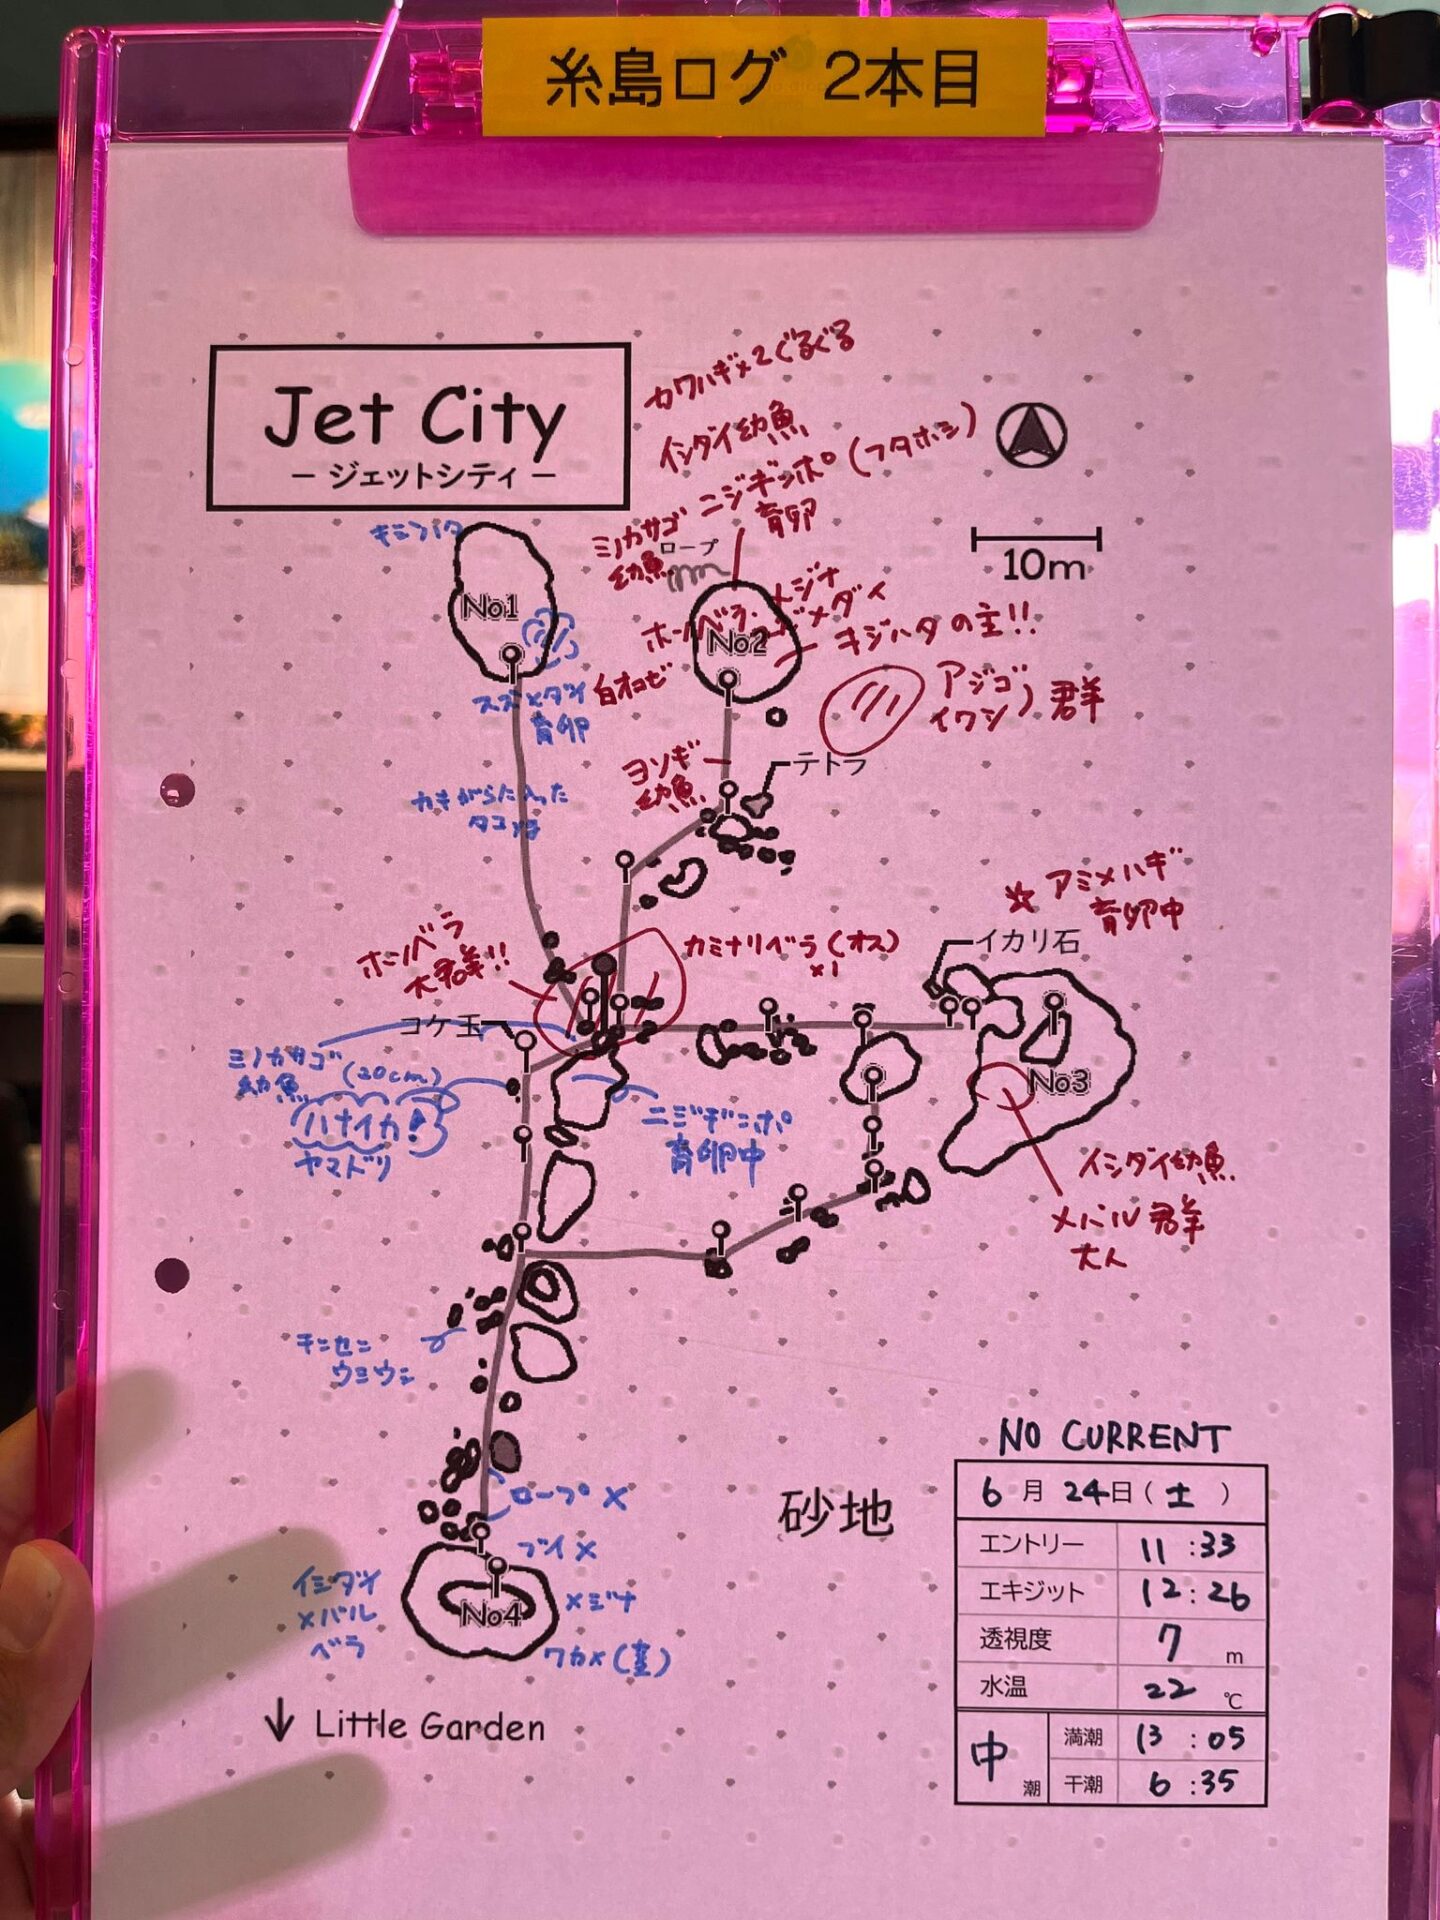 糸島ログ 2本目
Jet City
— ジェットシティ —
カワハギ×2ぐるぐる
イシダイ幼魚
ニジギンポ(フタホシ)
育卵
ミノカサゴ
幼魚
ロープ
10m
No1
スズメダイ
育卵
メジナ
ホンベラ
No2
キジハタの主!!
白オコゼ
アジゴ
イワシ
群
ヨソギ
幼魚
テトラ
カキがらに入った
☆ アミメハギ
育卵中
イカリ石
ホンベラ
大群!!
カミナリベラ(オス)
×1
コケ玉
ミノカサゴ
幼魚
(20cm)
ハナイカ!
ヤマドリ
ニジギンポ
育卵中
No3
イシダイ幼魚
メバル群
大人
チンセン
ウミウシ
ロープ×
ブイ×
イシダイ
メバル
ベラ
No4
メジナ
ワカメ(茎)
↓ Little Garden
砂地
NO CURRENT
6月24日(土)
エントリー 11:33
エキジット 12:26
透視度 7 m
水温 22 ℃
中潮
満潮 13:05
干潮 6:35